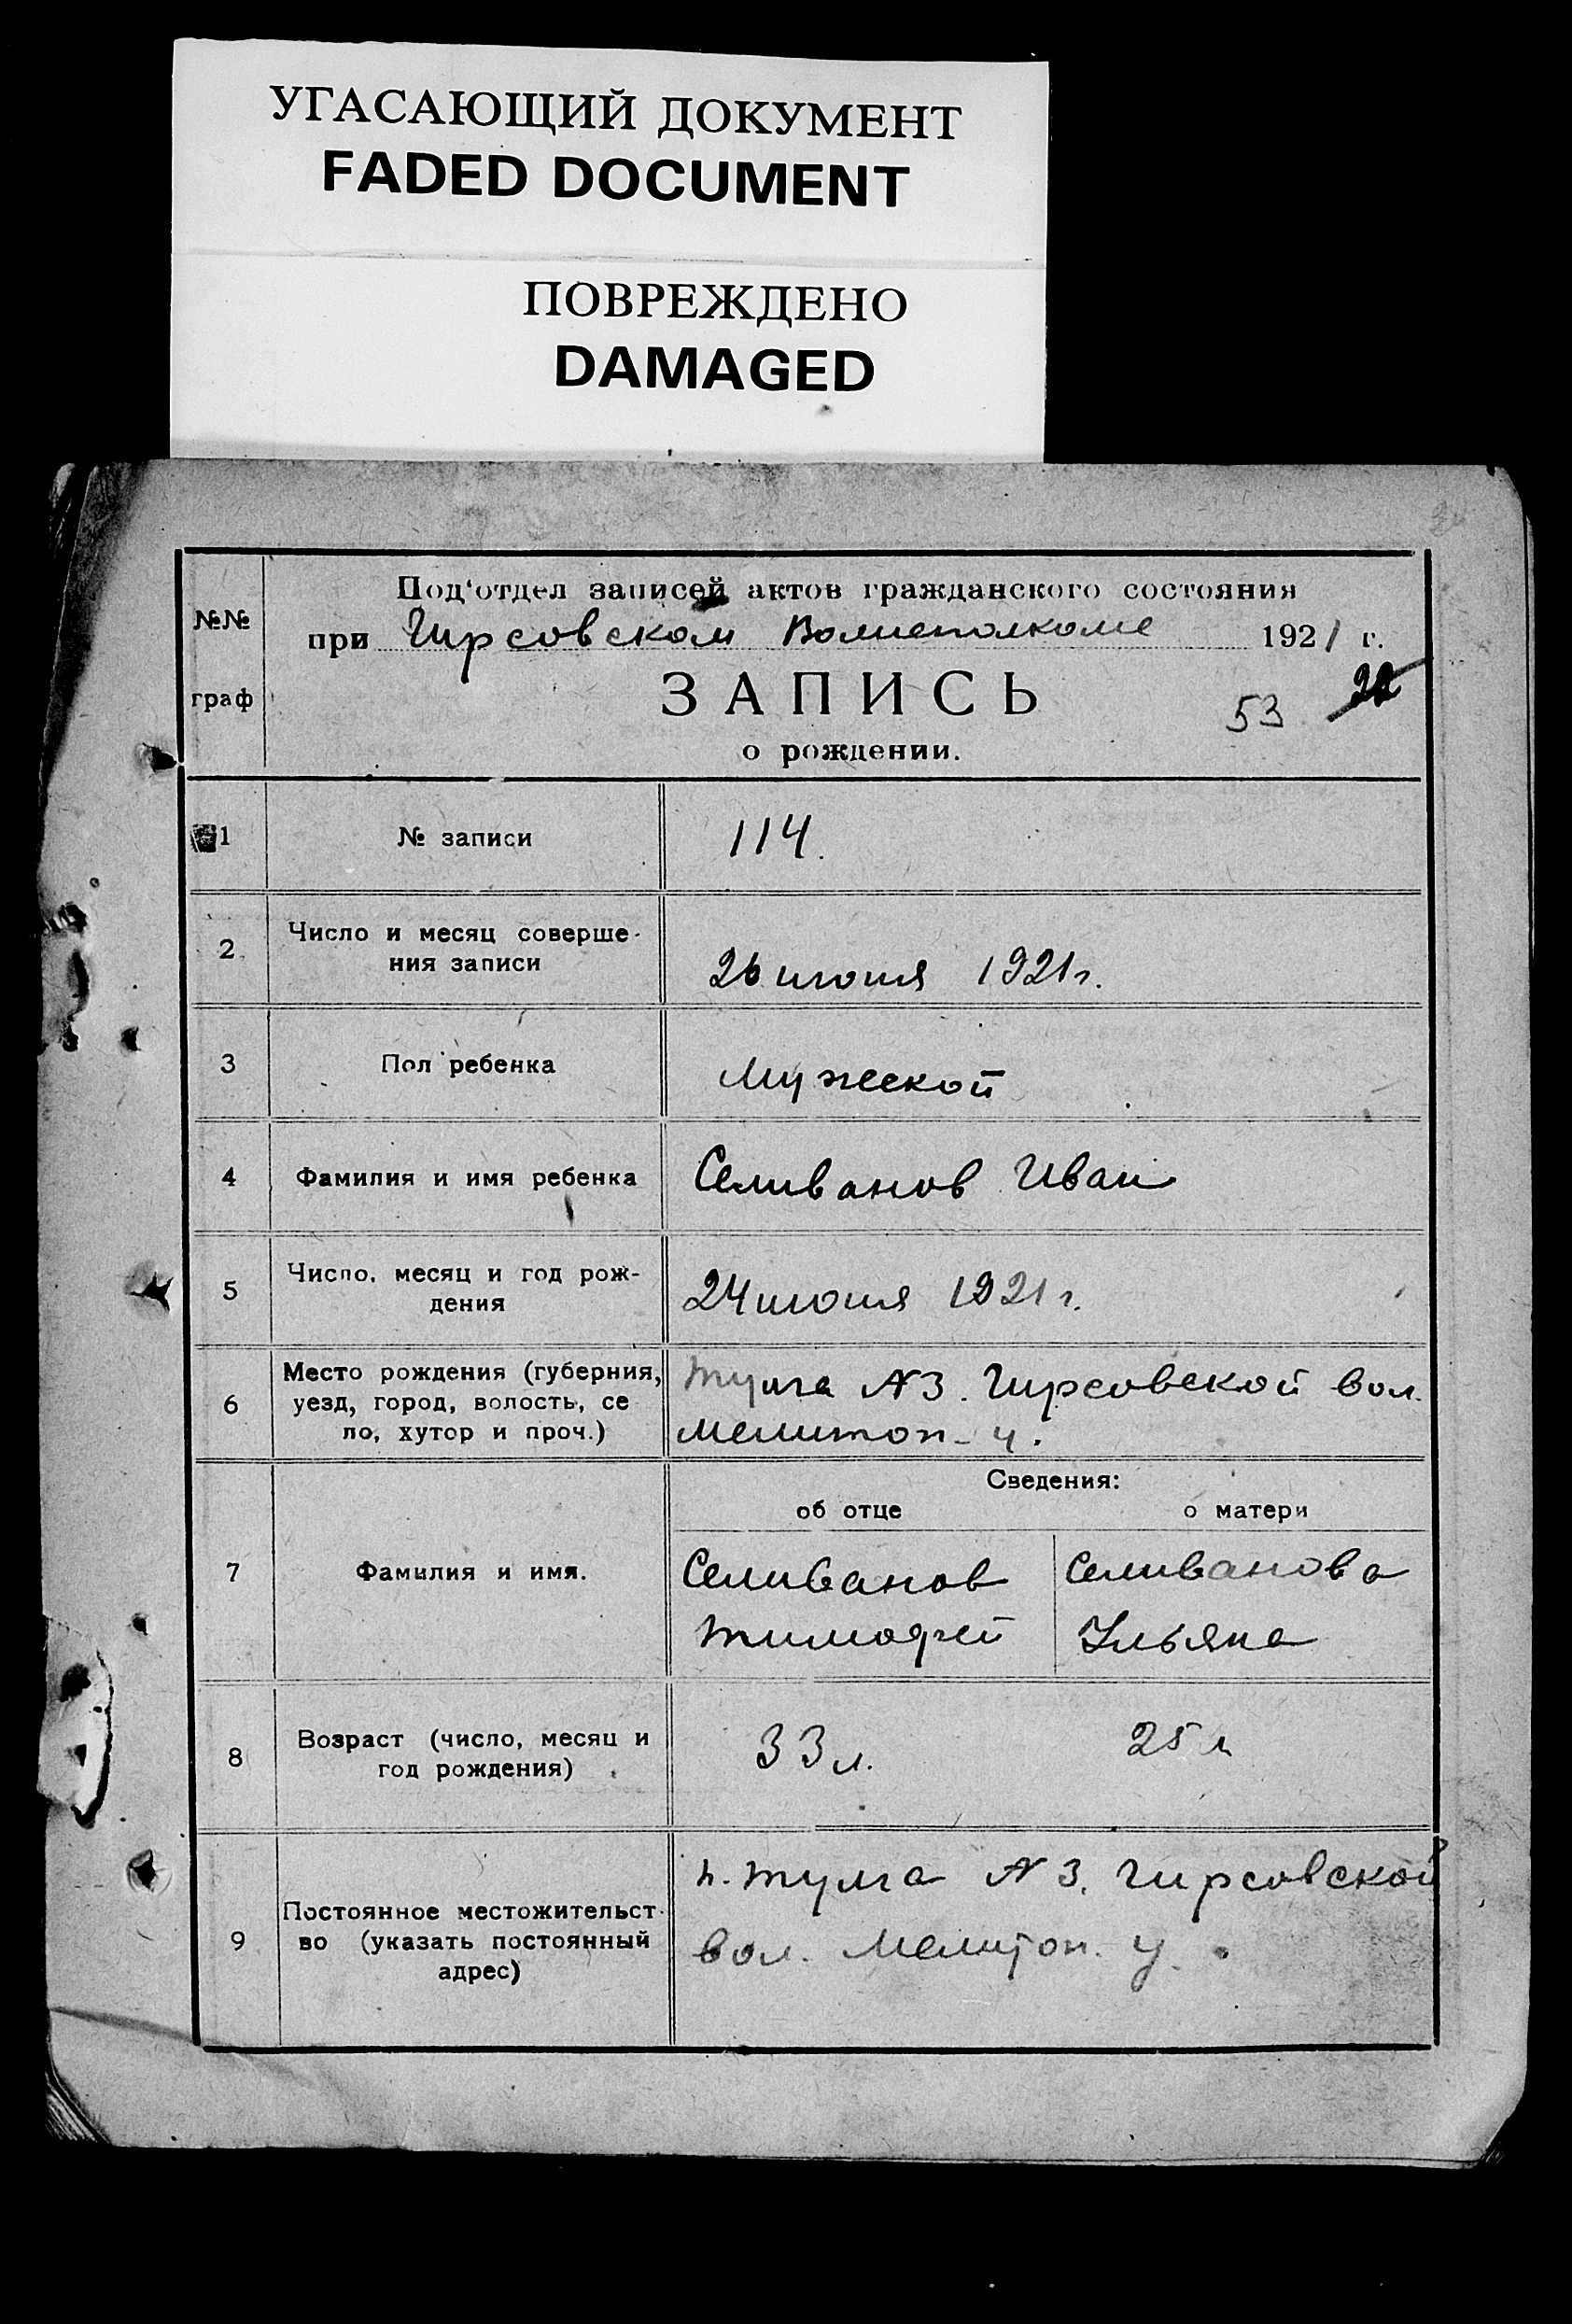 УГАСАЮЩИЙ ДОКУМЕНТ
FADED DOCUMENT
ПОВРЕЖДЕНО
DAMAGED
№№
граф
Под‘отдел записей актов гражданского состояния
при Гирсовском Волисполкоме 1921 г.
ЗАПИСЬ
53
о рождении.
1 № записи 114.
2 Число и месяц соверше-
ния записи 26 июня 1921 г.
3 Пол ребенка Мужской
4 Фамилия и имя ребенка Селиванов Иван
5 Число, месяц и год рож-
дения 24 июня 1921 г.
6 Место рождения (губерния, Тулга №3. Гирсовской вол.
уезд, город, волость, се
ло, хутор и проч.) Мелитоп. у.
Сведения:
об отце о матери
7 Фамилия и имя. Селиванов Селиванова
Тимофей Ульяна
8 Возраст (число, месяц и
год рождения) 33 л. 25 л
п. Тулга №3. Гирсовской
9 Постоянное местожительст-
во (указать постоянный
адрес) вол. Мелитоп. у.